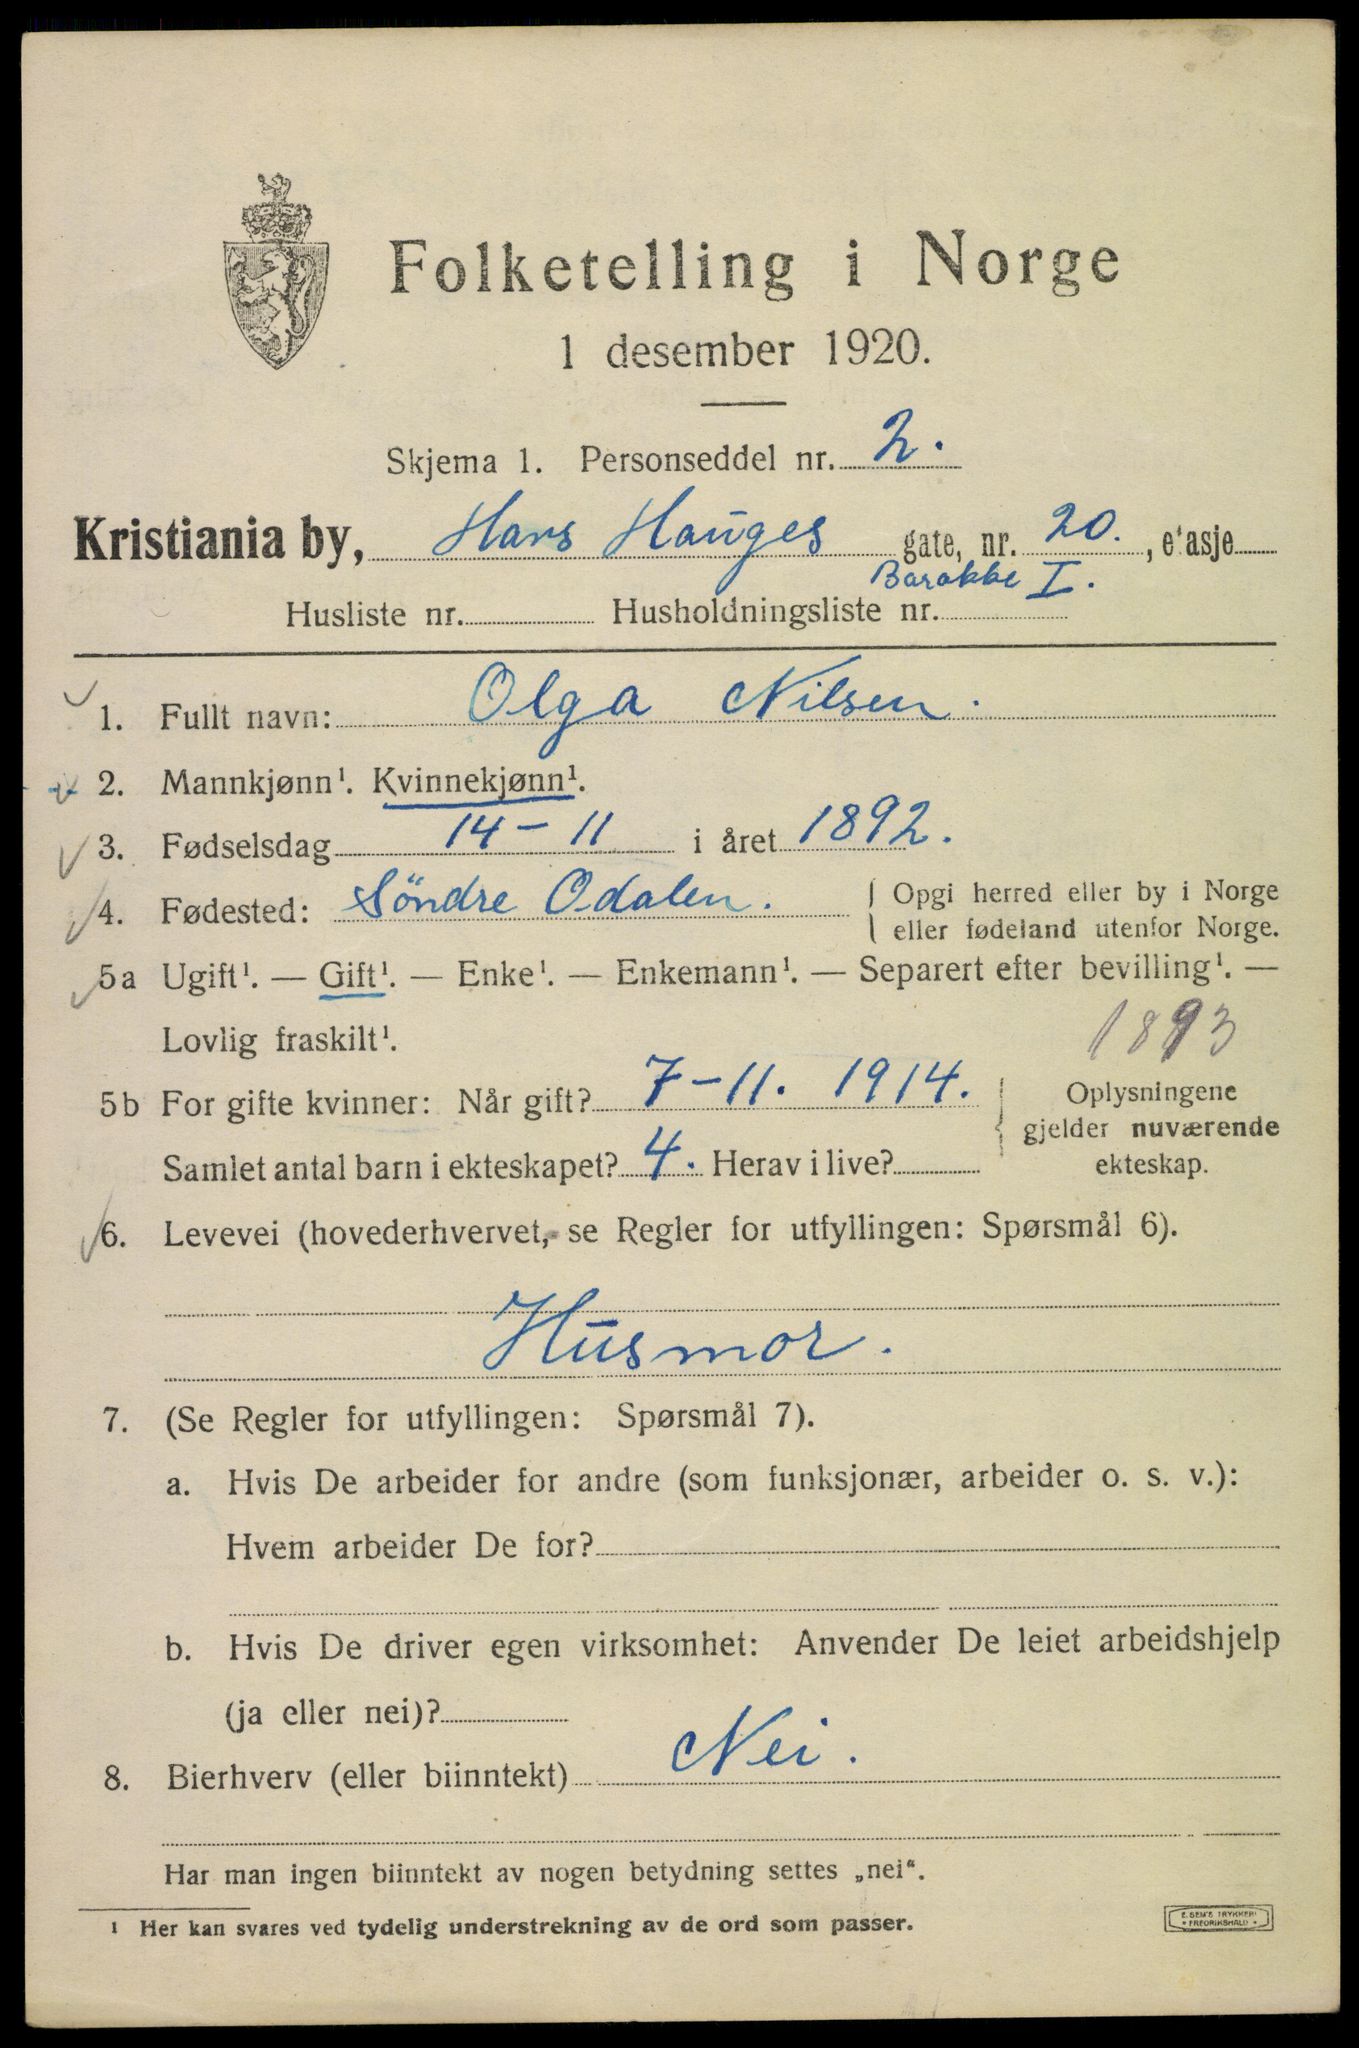 Folketelling i Norge
1 desember 1920.
Skjema 1. Personseddel nr. 2.
Kristiania by, Hans Hauges gate, nr. 20. , etasje
Barakke I.
Husliste nr. Husholdningsliste nr.
1. Fullt navn: Olga Nilsen.
2. Mannkjønn¹. Kvinnekjønn¹.
3. Fødselsdag 14 – 11 i året 1892.
4. Fødested: Söndre Odalen. { Opgi herred eller by i Norge
eller fødeland utenfor Norge.
5a Ugift¹. — Gift¹. — Enke¹. — Enkemann¹. — Separert efter bevilling¹. —
Lovlig fraskilt¹. 1893
5b For gifte kvinner: Når gift? 7–11. 1914. { Oplysningene
gjelder nuværende
Samlet antal barn i ekteskapet? 4. Herav i live? ekteskap.
6. Levevei (hovederhvervet, se Regler for utfyllingen: Spørsmål 6).
Husmor.
7. (Se Regler for utfyllingen: Spørsmål 7).
a. Hvis De arbeider for andre (som funksjonær, arbeider o. s. v.):
Hvem arbeider De for?
b. Hvis De driver egen virksomhet: Anvender De leiet arbeidshjelp
(ja eller nei)?
8. Bierhverv (eller biinntekt) Nei.
Har man ingen biinntekt av nogen betydning settes „nei“.
¹ Her kan svares ved tydelig understrekning av de ord som passer.
E. SEM'S TRYKKERI
• FREDRIKSHALD •